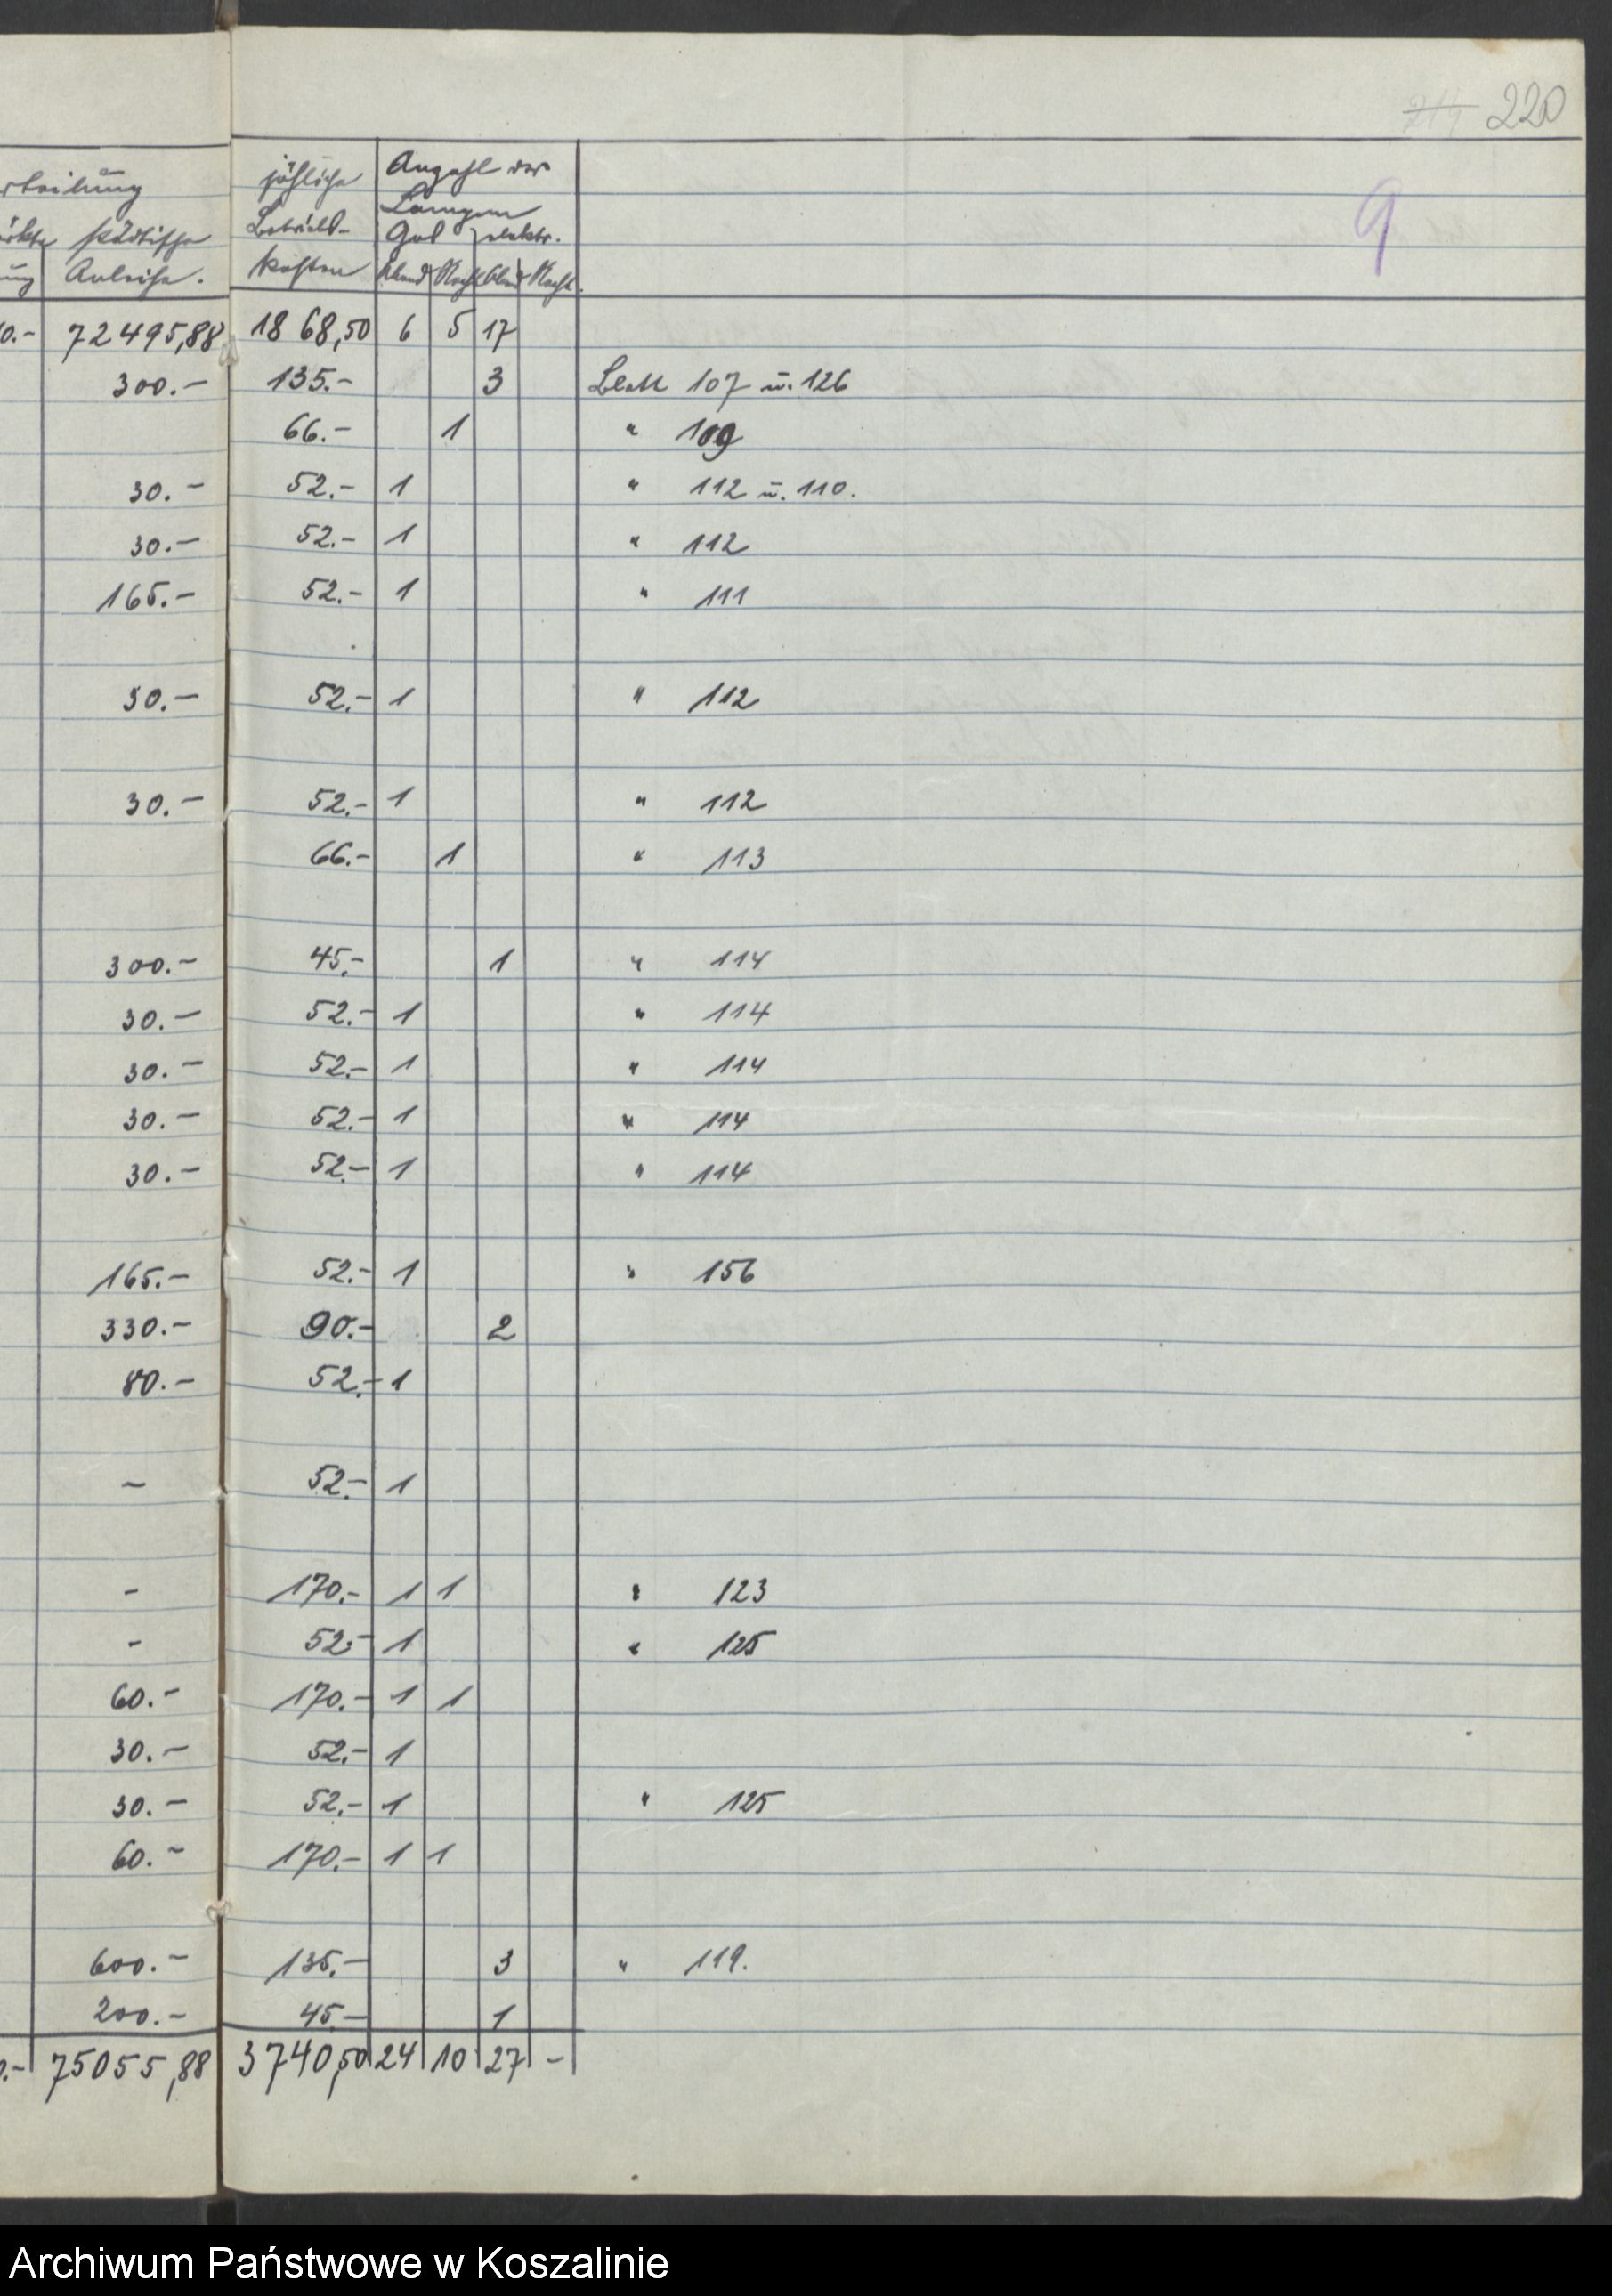 220
9
städtische
Anleihe.
jährliche
Betriebs-
kosten
Anzahl der
Lampen
Gas elektr.
Abend Nacht Abend Nacht
0.- 72495,88 1868,50 6 5 17
300.- 135.- 3 Blatt 107 u. 126
66.- 1 " 109
30.- 52.- 1 " 112 u. 110.
30.- 52.- 1 " 112
165.- 52.- 1 " 111
30.- 52.- 1 " 112
30.- 52.- 1 " 112
66.- 1 " 113
300.- 45.- 1 " 114
30.- 52.- 1 " 114
30.- 52.- 1 " 114
30.- 52.- 1 " 114
30.- 52.- 1 " 114
165.- 52.- 1 " 156
330.- 90.- 2
80.- 52.- 1
- 52.- 1
- 170.- 1 1 " 123
- 52.- 1 " 125
60.- 170.- 1 1
30.- 52.- 1
30.- 52.- 1 " 125
60.- 170.- 1 1
600.- 135.- 3 " 119.
200.- 45.- 1
75055,88 3740,50 24 10 27 -
Archiwum Państwowe w Koszalinie